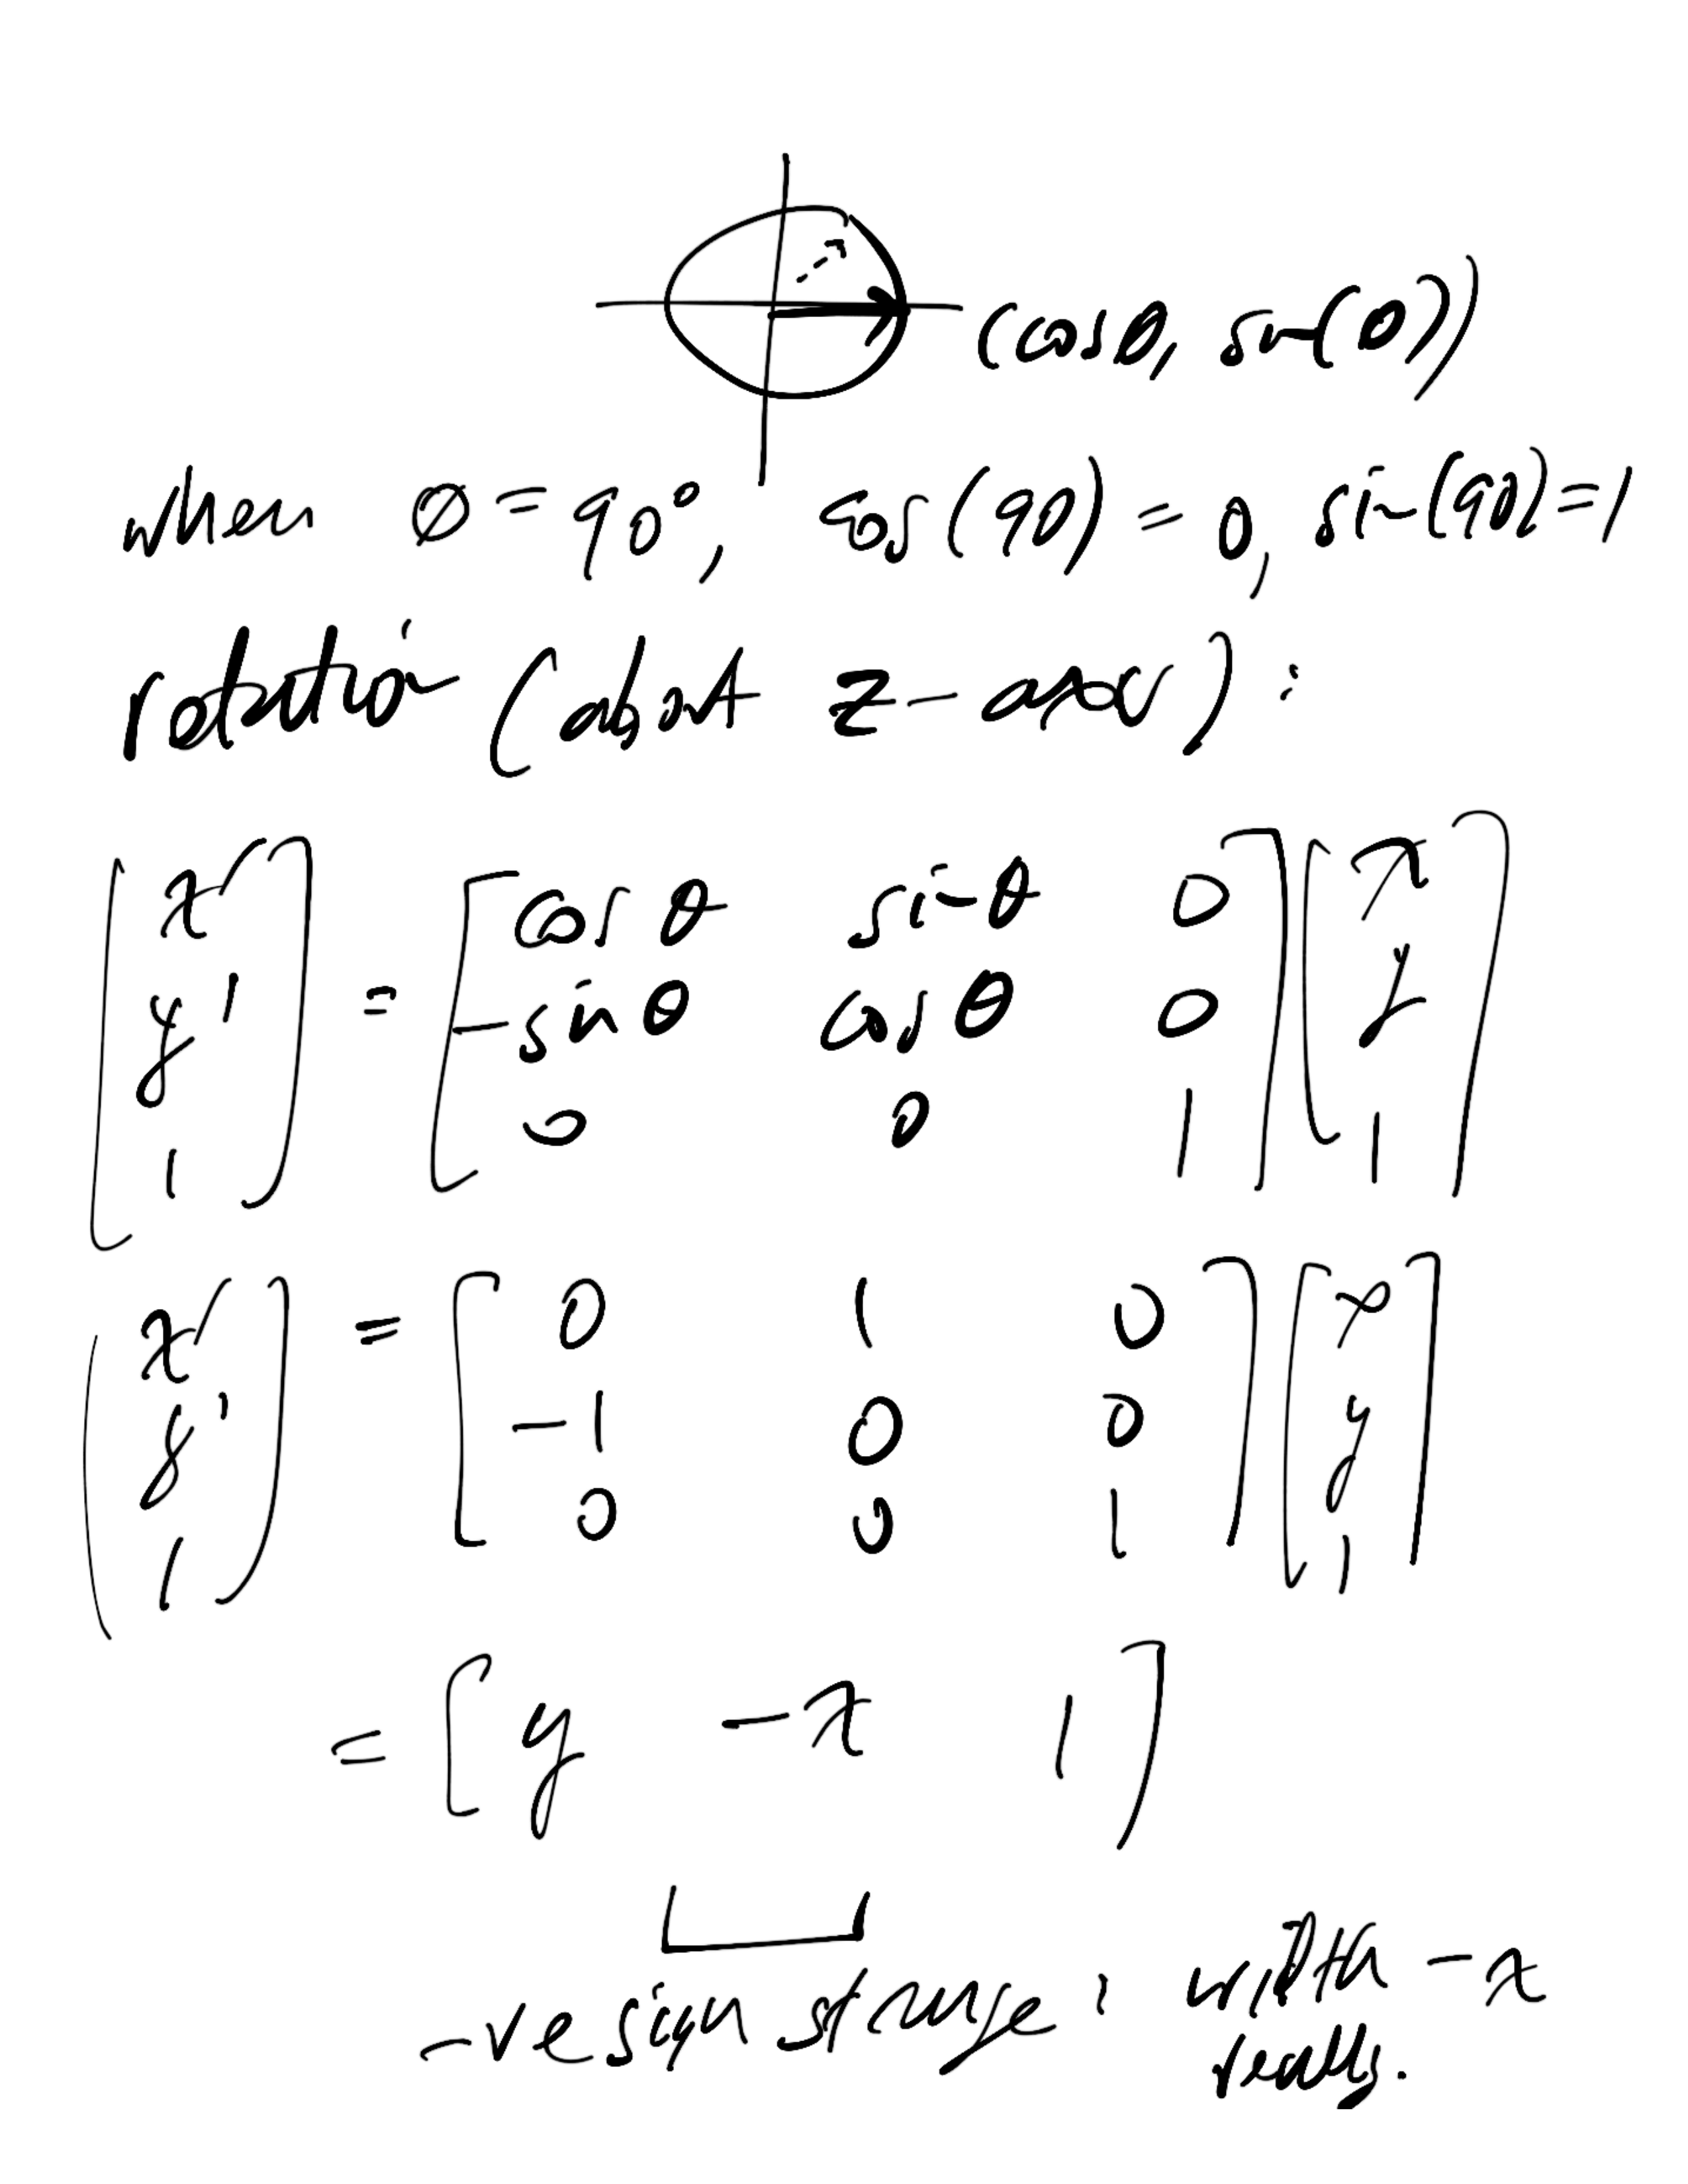 (cosθ, sin(θ))
when θ = 90°, cos(90) = 0, sin(90) = 1
rotation (about z-axis):
[x' y' 1] = [cos θ sin θ 0; -sin θ cos θ 0; 0 0 1] [x y 1]
[x' y' 1] = [0 1 0; -1 0 0; 0 0 1] [x y 1]
= [y -x 1]
-ve sign strange: width -x
really.